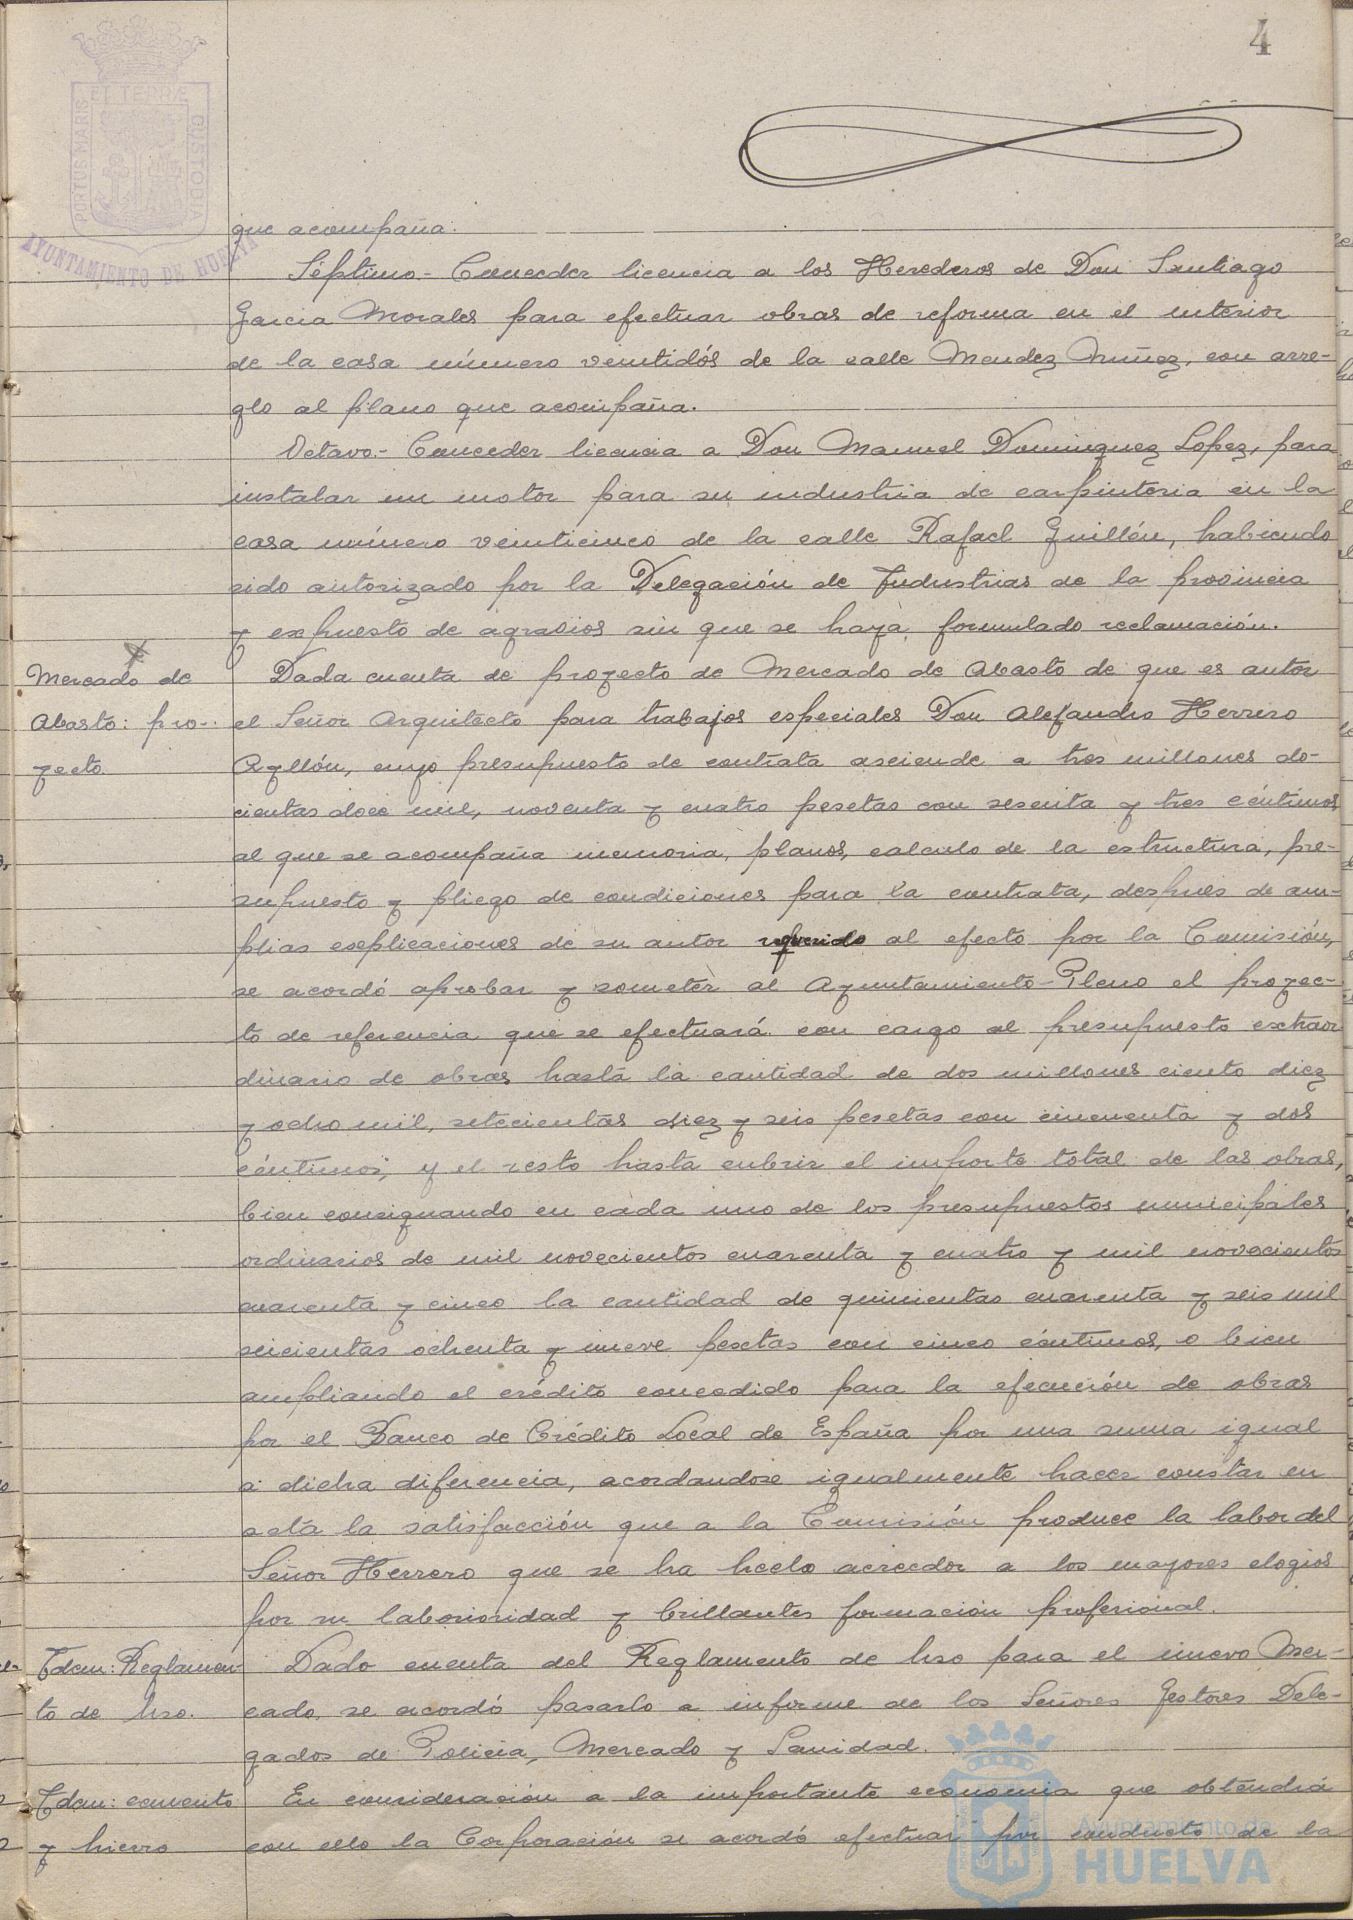 4
PORTUS MARIS ET TERRÆ CUSTODIA
AYUNTAMIENTO DE HUELVA
que acompaña.
Séptimo.- Conceder licencia a los Herederos de Don Santiago
Garcia Morales para efectuar obras de reforma en el interior
de la casa número veintidós de la calle Mendez Nuñez, con arre-
glo al plano que acompaña.
Octavo.- Conceder licencia a Don Manuel Dominguez Lopez, para
instalar un motor para su industria de carpinteria en la
casa número veinticinco de la calle Rafael Guillén, habiendo
sido autorizado por la Delegación de Industrias de la provincia
y expuesto de agravios sin que se haya formulado reclamación.
Mercado de
Abasto: pro-
yecto.
Dada cuenta de proyecto de Mercado de Abasto de que es autor
el Señor Arquitecto para trabajos especiales Don Alejandro Herrero
Ayllón, cuyo presupuesto de contrata asciende a tres millones do-
cientas doce mil, noventa y cuatro pesetas con sesenta y tres céntimos
al que se acompaña memoria, planos, calculo de la estructura, pre-
supuesto y pliego de condiciones para la contrata, despues de am-
plias explicaciones de su autor requerido al efecto por la Comisión,
se acordó aprobar y someter al Ayuntamiento-Pleno el proyec-
to de referencia que se efectuará con cargo al presupuesto extraor
dinario de obras hasta la cantidad de dos millones ciento diez
y ocho mil, setecientas diez y seis pesetas con cincuenta y dos
céntimos, y el resto hasta cubrir el importe total de las obras,
bien consignando en cada uno de los presupuestos municipales
ordinarios de mil novecientos cuarenta y cuatro y mil novecientos
cuarenta y cinco la cantidad de quinientas cuarenta y seis mil
seicientas ochenta y nueve pesetas con cinco céntimos, o bien
ampliando el crédito concedido para la ejecución de obras
por el Banco de Crédito Local de España por una suma igual
a dicha diferencia, acordandose igualmente hacer constar en
acta la satisfacción que a la Comisión produce la labor del
Señor Herrero que se ha hecho acreedor a los mayores elogios
por su laboriosidad y brillantes formación profesional.
Idem: Reglamen-
to de Uso.
Dado cuenta del Reglamento de Uso para el nuevo Mer-
cado, se acordó pasarlo a informe de los Señores Gestores Dele-
gados de Policia, Mercado y Sanidad.
Idem: cemento
y hierro
En consideración a la importante economia que obtendrá
con ello la Corporación se acordó efectuar por conducto de la
Ayuntamiento de
HUELVA